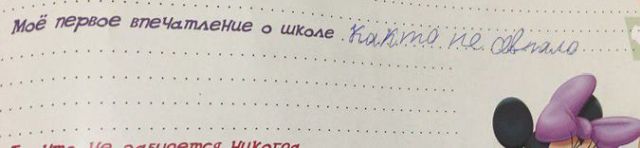 Моё первое впечатление о школе както не овпало
То, что не забудется никогда